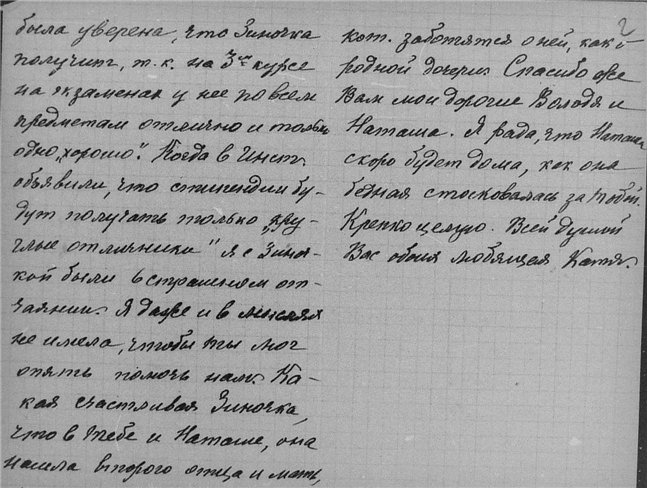 была уверена, что Зиночка
получит, т.к. на 3ем курсе
на экзаменах у нее по всем
предметам отлично и только
одно „хорошо". Когда в Инст.
объявили, что стипендии бу-
дут получать только „кру-
глые отличники" я с Зиноч-
кой были в страшном от-
чаянии. Я даже и в мыслях
не имела, чтобы ты мог
опять помочь нам. Ка-
кая счастливая Зиночка,
что в Тебе и Наташе, она
нашла второго отца и мать,
2
кот. заботятся о ней, как о
родной дочери. Спасибо же
Вам мои дорогие Володя и
Наташа. Я рада, что Наташа
скоро будет дома, как она
бедная стосковалась за тобой.
Крепко целую. Всей душой
Вас обоих любящая Катя.